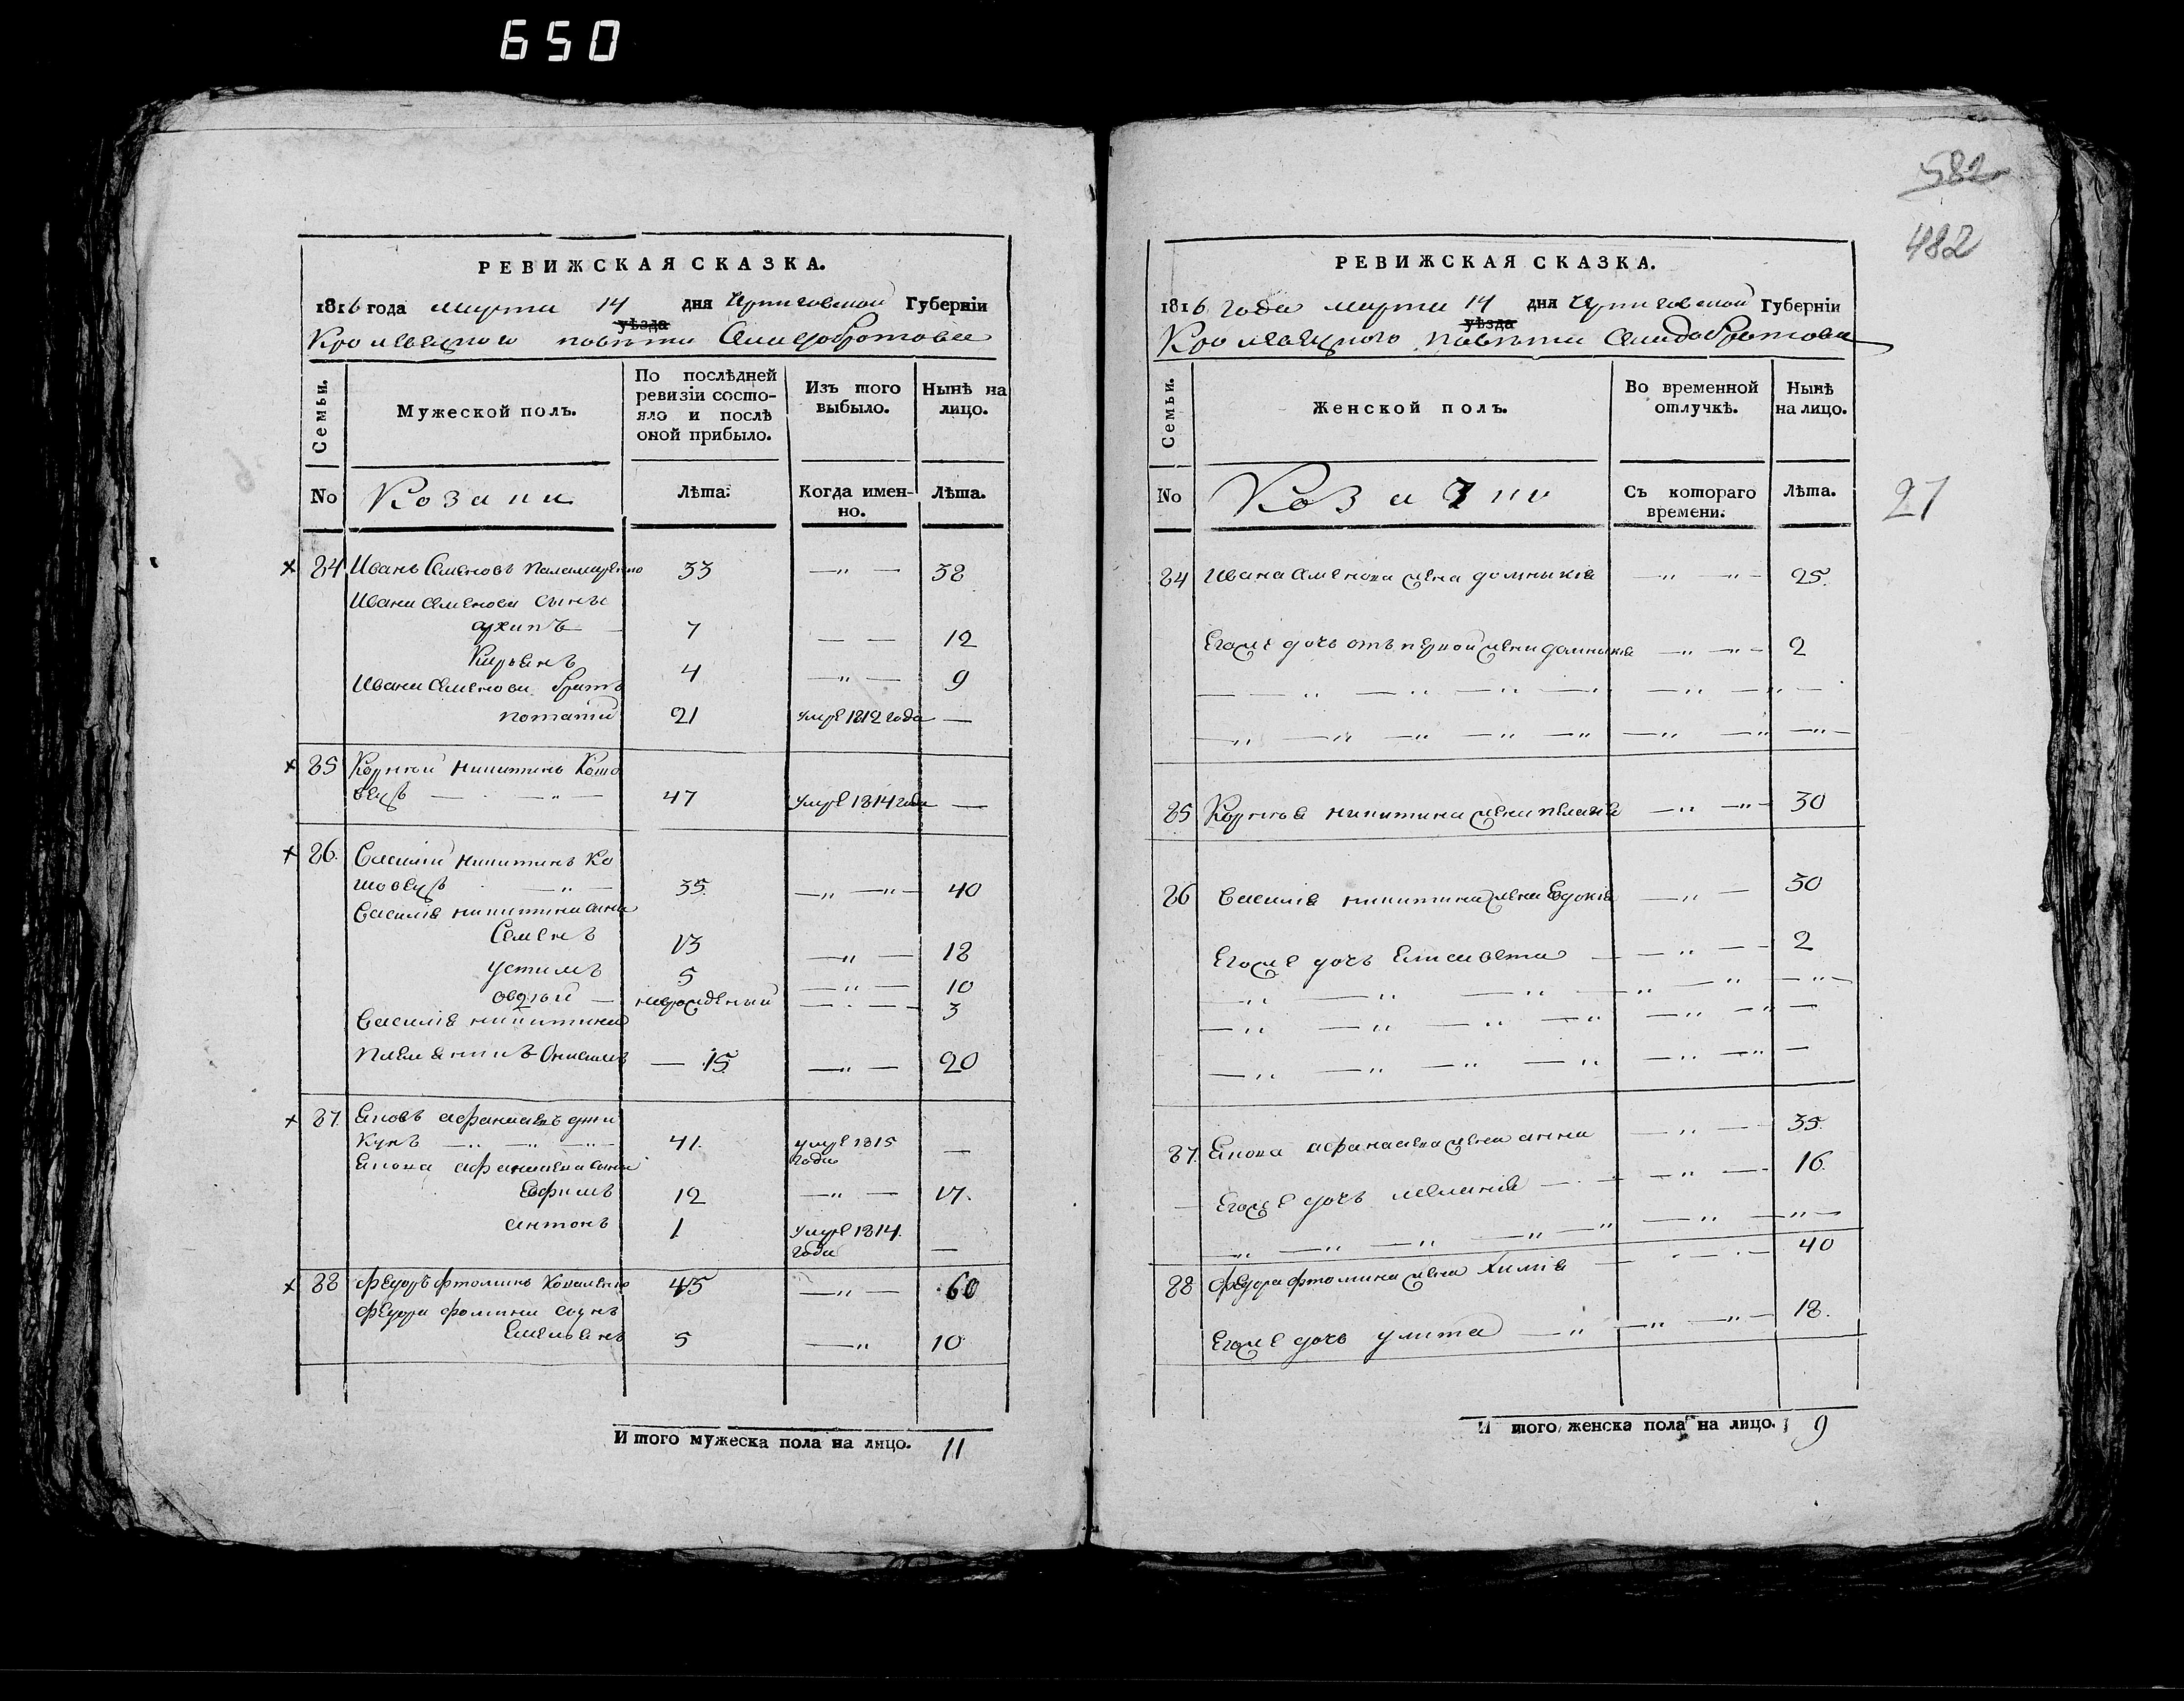 650
РЕВИЖСКАЯ СКАЗКА.
1816 года марта 14 дня Черниговской Губернїи
уѣзда
Кролевецкого повѣта Села Добротова
Семьи.
Мужеской полъ.
По послѣдней ревизїи состояло и послѣ оной прибыло.
Изъ того выбыло.
Нынѣ на лицо.
No
Козаки
Лѣта:
Когда именно.
Лѣта.
84 Иванъ Семеновъ Паламаренко 33 38
Ивана Семенова сыны
архипъ 7 12
Кирьянъ 4 9
Ивана Семенова братъ
потапїй 21 умре 1812 года
85 Корнѣй никитинъ Кошо
вецъ 47 умре 1814 года
86. Василий никитинъ Ко
шовецъ 35. 40
Василїя никитина сыны
Семенъ 13 18
устимъ 5 10
овдѣй неурожденный 3
Василїя никитина
племянникъ Онисимъ 15. 20
87. Яковъ афанасьевъ
кунъ 41. умре 1815 года
Якова афанасьева сыны
Евфимъ 12 17.
антонъ 1 умре 1814. года
88 Федоръ фтоминъ Коваленко 45 60
Федора фомина сынъ
Емельянъ 5 10
Итого мужеска пола на лицо. 11
582
482
РЕВИЖСКАЯ СКАЗКА.
1816 года марта 14 дня Черниговской Губернїи
уѣзда
Кролевецкого повѣта Села Добротова
Семьи.
Женской полъ.
Во временной отлучкѣ.
Нынѣ на лицо.
No
Козачки
Съ котораго времени:
Лѣта.
27
84 Ивана Семенова жена домникїя 25.
Егоже дочь отъ первой жены домникїя 2
85 Корнѣя никитина жена пелагїя 30
86 Василїя никитина жена Евдокїя 30
Егоже дочь Елисавета 2
87. Якова афанасьева жена анна 35.
Егоже дочь меланїя 16.
88 Федора фтомина жена Химїя 40
Егоже дочь улита 18.
Итого женска пола на лицо. 9